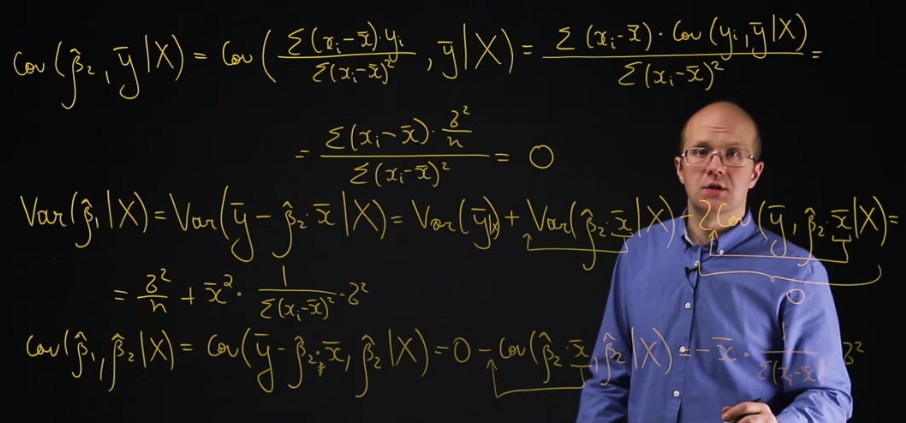 Cov(β̂₂, ȳ|X) = Cov( Σ(xᵢ-x̄)·yᵢ / Σ(xᵢ-x̄)² , ȳ|X) = Σ(xᵢ-x̄)·Cov(yᵢ,ȳ|X) / Σ(xᵢ-x̄)² =
= Σ(xᵢ-x̄)·σ²/n / Σ(xᵢ-x̄)² = 0
Var(β̂₁|X) = Var(ȳ - β̂₂·x̄|X) = Var(ȳ|X) + Var(β̂₂·x̄|X) - 2Cov(ȳ, β̂₂·x̄|X) =
0
= σ²/n + x̄²· 1/Σ(xᵢ-x̄)² ·σ²
Cov(β̂₁, β̂₂|X) = Cov(ȳ - β̂₂·x̄, β̂₂|X) = 0 - Cov(β̂₂·x̄, β̂₂|X) = -x̄· 1/Σ(xᵢ-x̄)² σ²